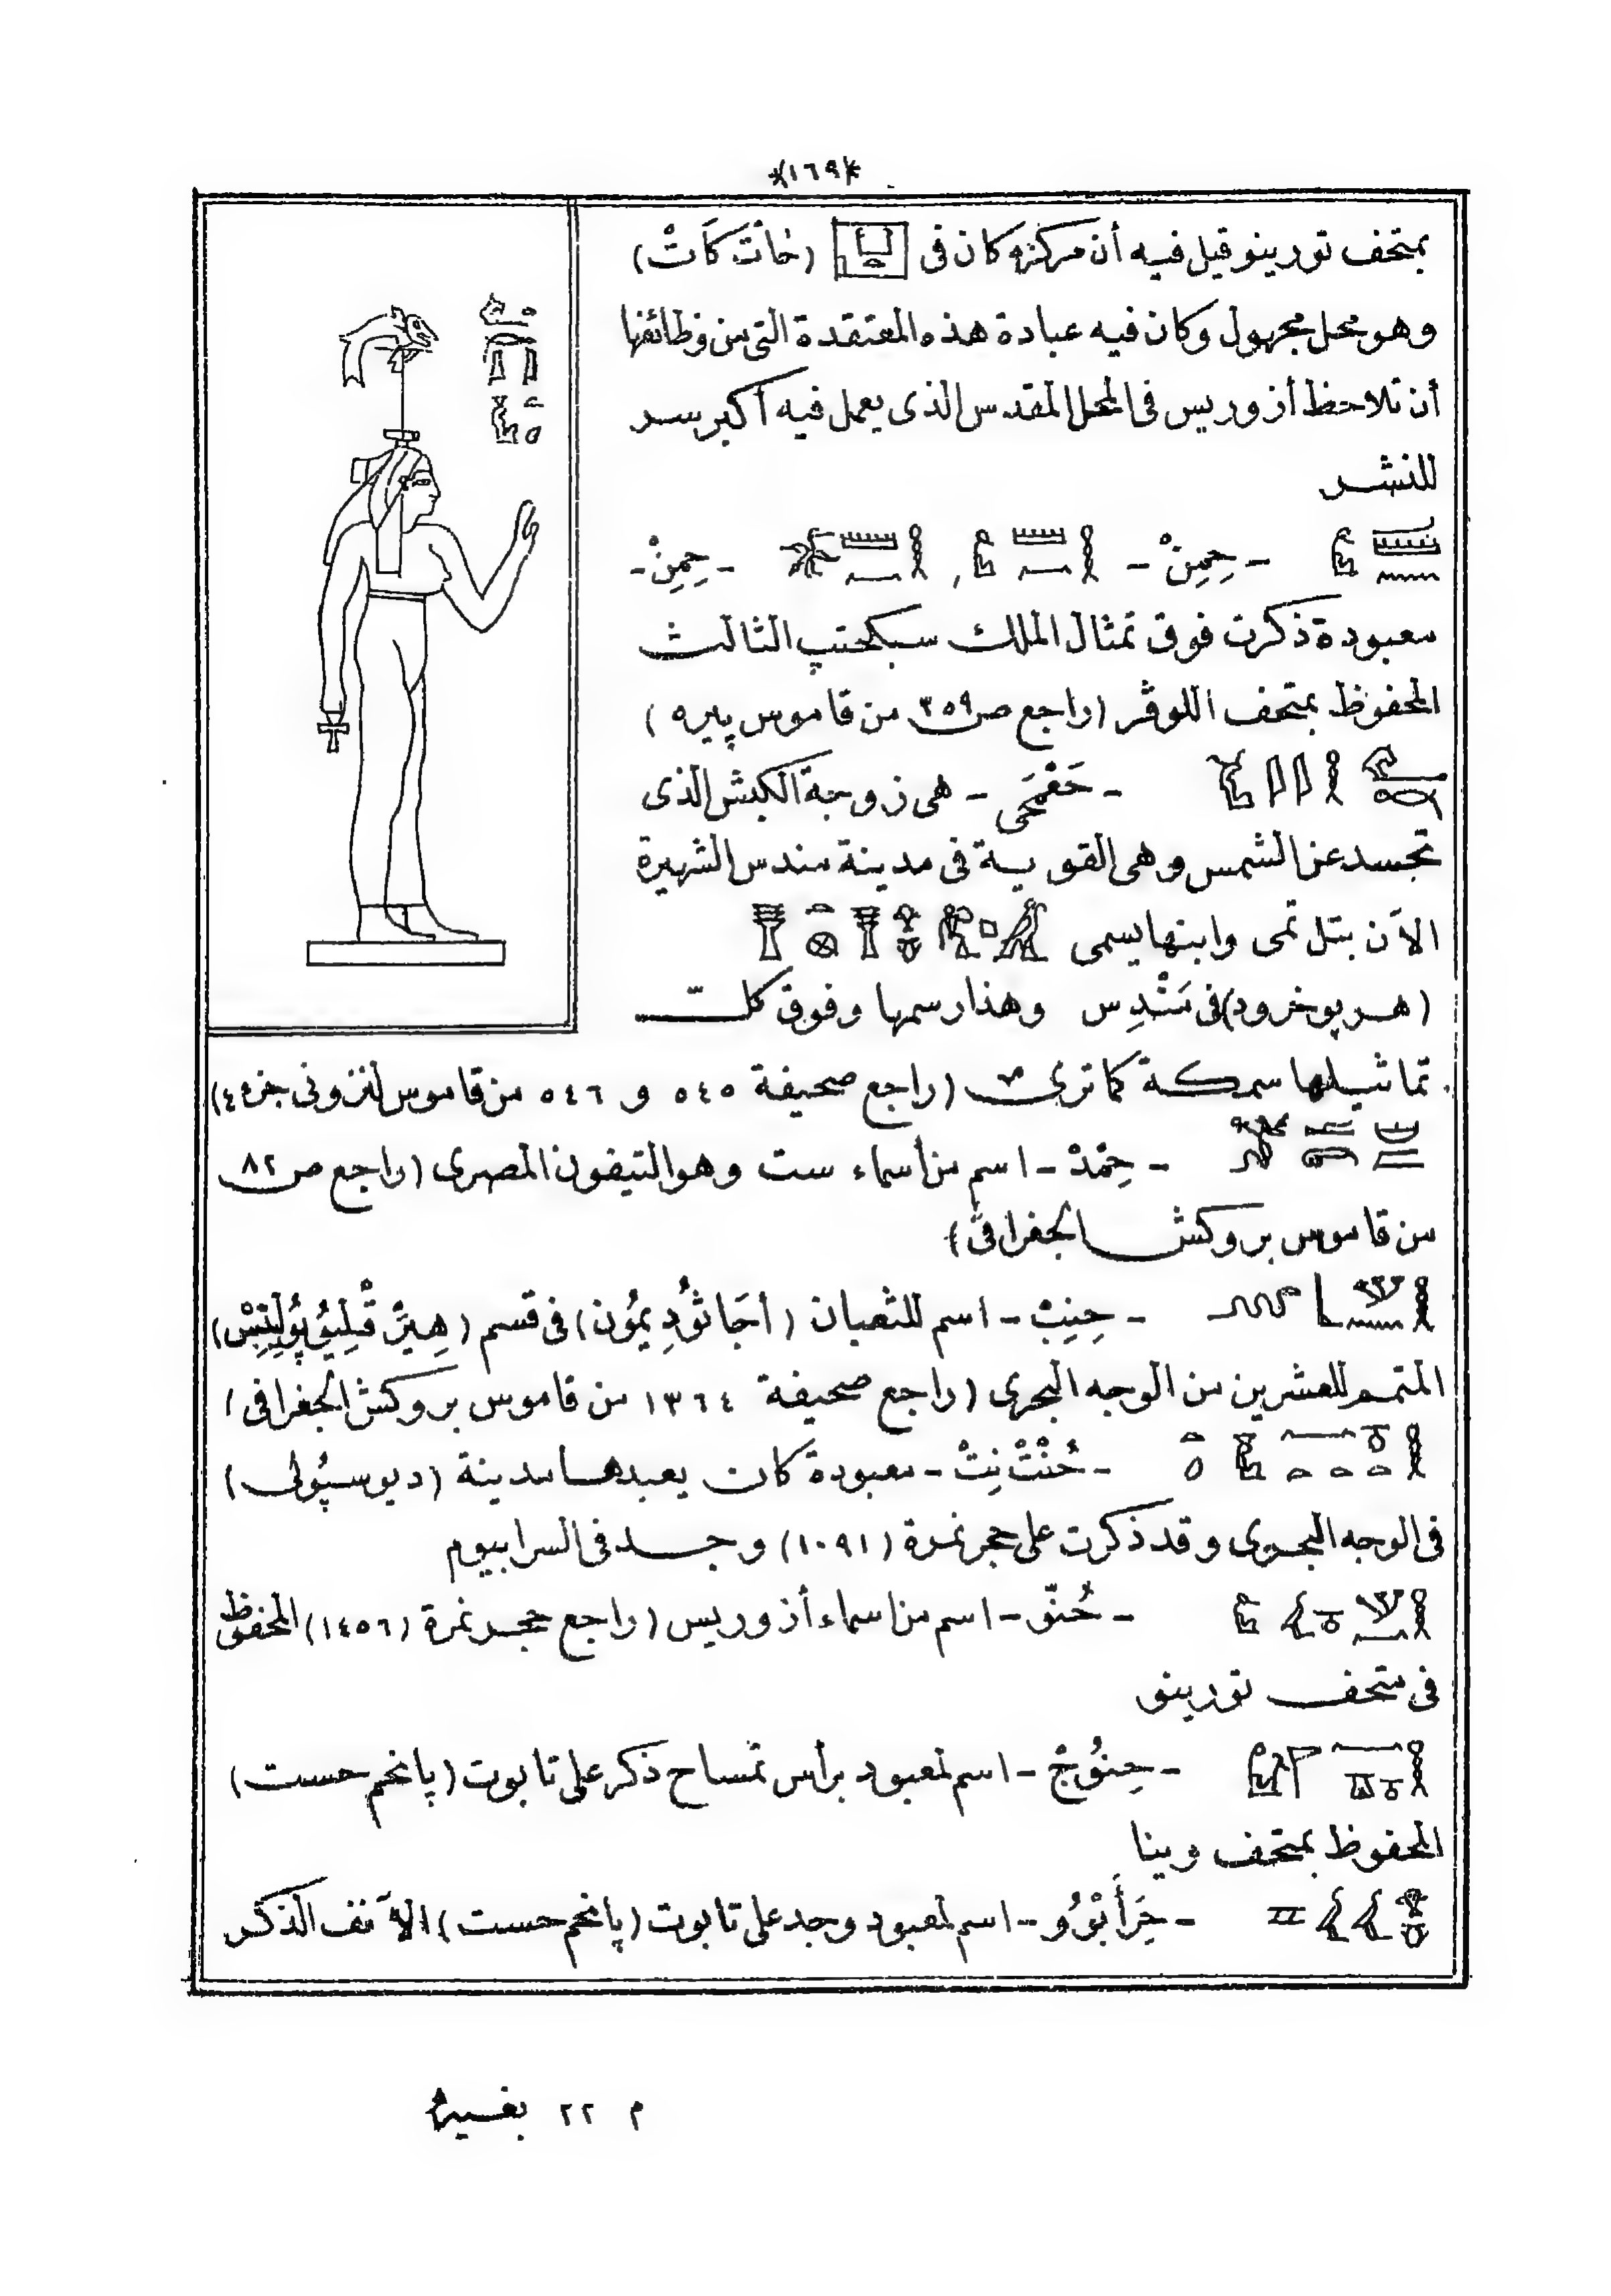 *(١٦٩)*
بمتحف تورينو قيل فيه أن مركزه كان فى (حَانْتَ كَاتْ)
وهو محل مجهول وكان فيه عبادة هذه المعتقدة التى من وظائفها
أن تلاحظ أزوريس فى المحل المقدس الذى يعمل فيه أكبر سر
للنشر
- حِمِنْ - - حِمِنْ -
معبودة ذكرت فوق تمثال الملك سبكحتب الثالث
المحفوظ بمتحف اللوڤر (راجع ص ٣٥٩ من قاموس پيره)
- حَعْمَحَى - هى زوجة الكبش الذى
تجسد عن الشمس وهى القوية فى مدينة مندس الشهيرة
الآن بتل تمى وابنها يسمى
(هرپوخرود) فى مَنْدِس وهذا رسمها وفوق كل
تماثيلها سمكة كما ترى (راجع صحيفة ٥٤٥ و ٥٤٦ من قاموس لنزونى جزء ٤)
- حِمْدْ - اسم من أسماء ست وهو التيفون المصرى (راجع ص ٨٢
من قاموس بروكش الجغرافى)
- حِنِبْ - اسم للثعبان (أجَاثُودِيمُون) فى قسم
المتمم للعشرين من الوجه البحرى (راجع صحيفة ١٣٦٤ من قاموس بروكش الجغرافى)
- حُنْتْ نِتْ - معبودة كان يعبدها مدينة (ديوسپُولى)
فى الوجه البحرى وقد ذكرت على حجر نمرة (١٠٩١) وجد فى السرابيوم
- حُنّو - اسم من اسماء أزوريس (راجع حجر نمرة (١٤٥٦) المحفوظ
فى متحف تورينو
- حِنُوجْ - اسم لمعبود برأس تمساح ذكر على تابوت (پانحم حست)
المحفوظ بمتحف وينا
- اسم لمعبود وجد على تابوت (پانحم حست) الآنف الذكر
م ٢٢